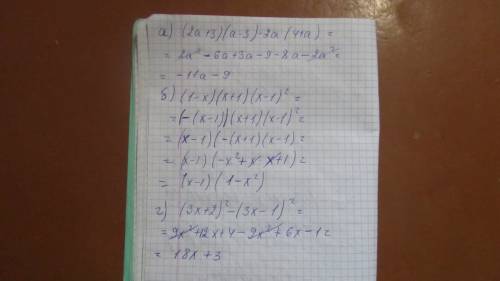 а) (2a+3)(a-3)-2a(4+a)=
= 2a²-6a+3a-9-8a-2a²=
= -11a-9
б) (1-x)(x+1)(x-1)²=
=(-(x-1))(x+1)(x-1)²=
= (x-1)(-(x+1)(x-1)=
= (x-1)(-x²+x x+1)=
= (x-1)(1-x²)
г) (3x+2)²-(3x-1)²=
= 9x²+12x+4-9x²+6x-1=
= 18x+3